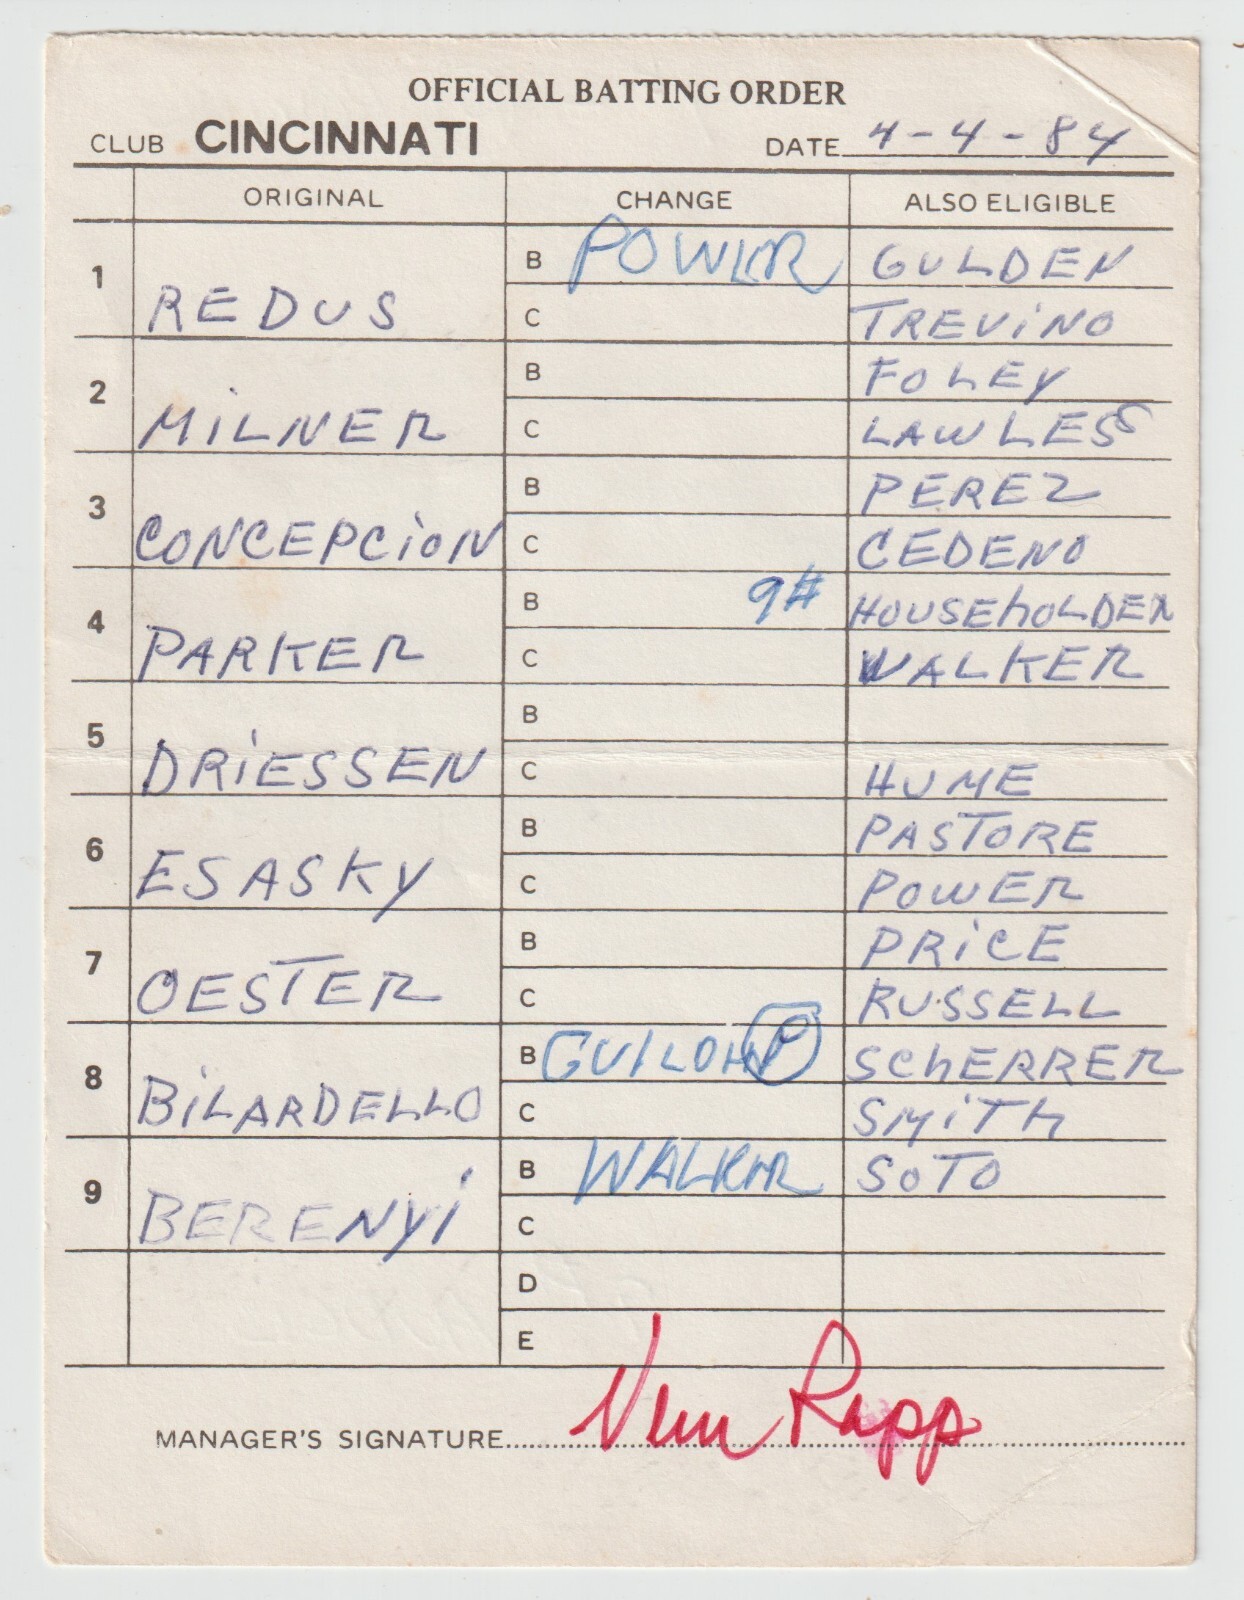 OFFICIAL BATTING ORDER
CLUB CINCINNATI DATE 4-4-84
ORIGINAL CHANGE ALSO ELIGIBLE
1 REDUS B POWER GULDEN
C TREViNO
2 MiLNER B FOLEY
C LAWLESS
3 CONCEPCiON B PEREZ
C CEDENO
4 PARKER B 9# HOUSEhOLDER
C WALKER
5 DRiESSEN B
C HUME
6 ESASKY B PASTORE
C POWER
7 OESTER B PRiCE
C RUSSELL
8 BiLARDELLO B SChERRER
C SMiTh
9 BERENYi B WALKER SOTO
C
D
E
MANAGER'S SIGNATURE Vern Rapp